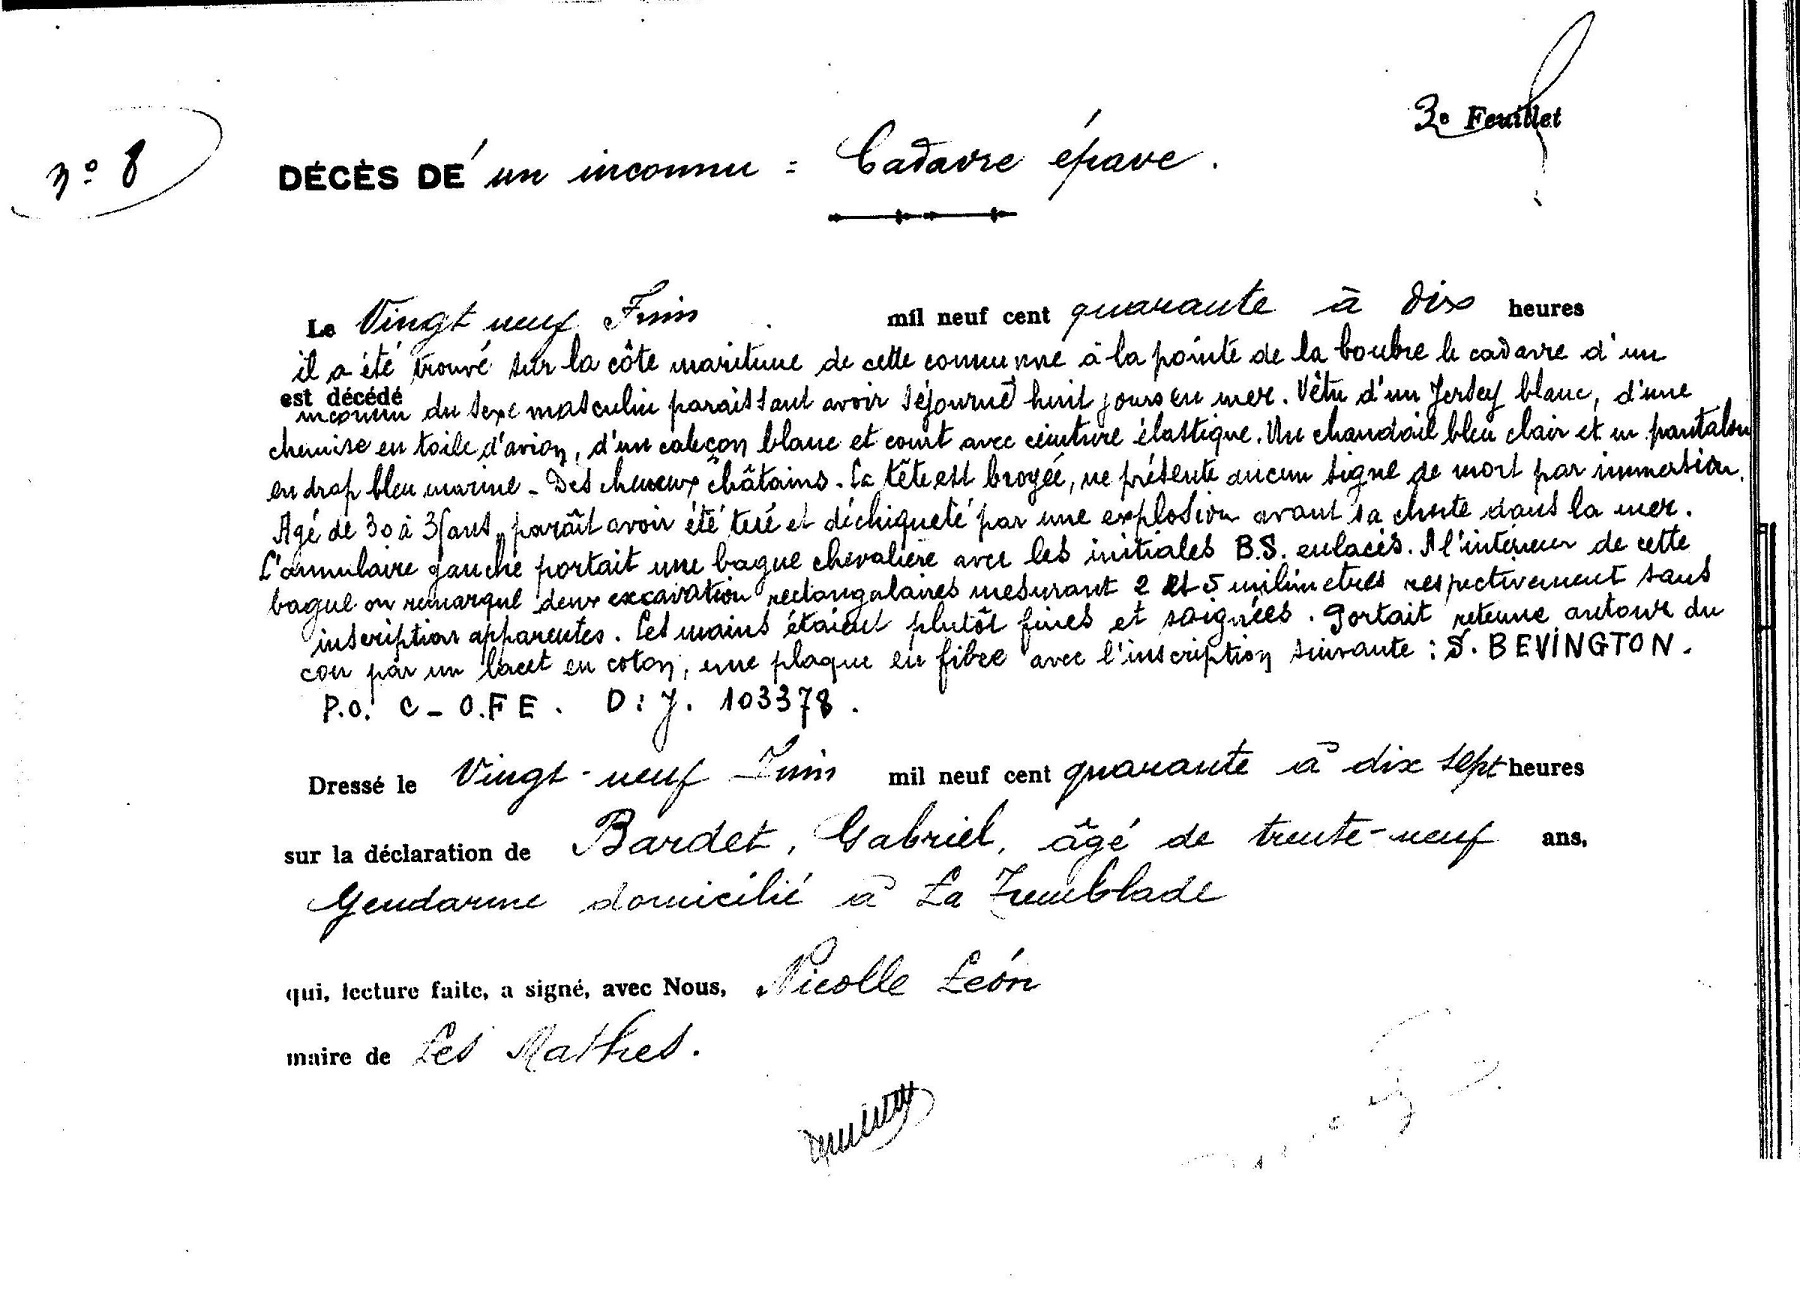 3e Feuillet
No 8
DÉCÈS DE un inconnu = Cadavre épave.
Le Vingt neuf Juin mil neuf cent quarante à dix heures
il a été trouvé sur la côte maritime de cette commune à la pointe de la boubre le cadavre d'un
est décédé
inconnu du sexe masculin paraissant avoir séjourné huit jours en mer. Vêtu d'un Jersey blanc, d'une
chemise en toile d'avion, d'un caleçon blanc et court avec ceinture élastique. Un chandail bleu clair et un pantalon
en drap bleu marine - Des cheveux châtains. La tête est broyée, ne présente aucun signe de mort par immersion.
Agé de 30 à 35 ans, paraît avoir été tué et déchiqueté par une explosion avant sa chute dans la mer.
L'annulaire gauche portait une bague chevalière avec les initiales B.S. enlacés. A l'intérieur de cette
bague on remarque deux excavation rectangulaires mesurant 2 et 5 milimètres respectivement sans
inscription apparentes. Les mains étaient plutôt fines et soignées. Portait retenue autour du
cou par un lacet en coton, une plaque en fibre avec l'inscription suivante : S. BEVINGTON.
P.O. C - O.FE. D : J. 103378.
Dressé le Vingt-neuf Juin mil neuf cent quarante à dix sept heures
sur la déclaration de Bardet, Gabriel, âgé de trente-neuf ans,
Gendarme domicilié à La Tremblade
qui, lecture faite, a signé, avec Nous, Nicolle Léon
maire de Les Mathes.